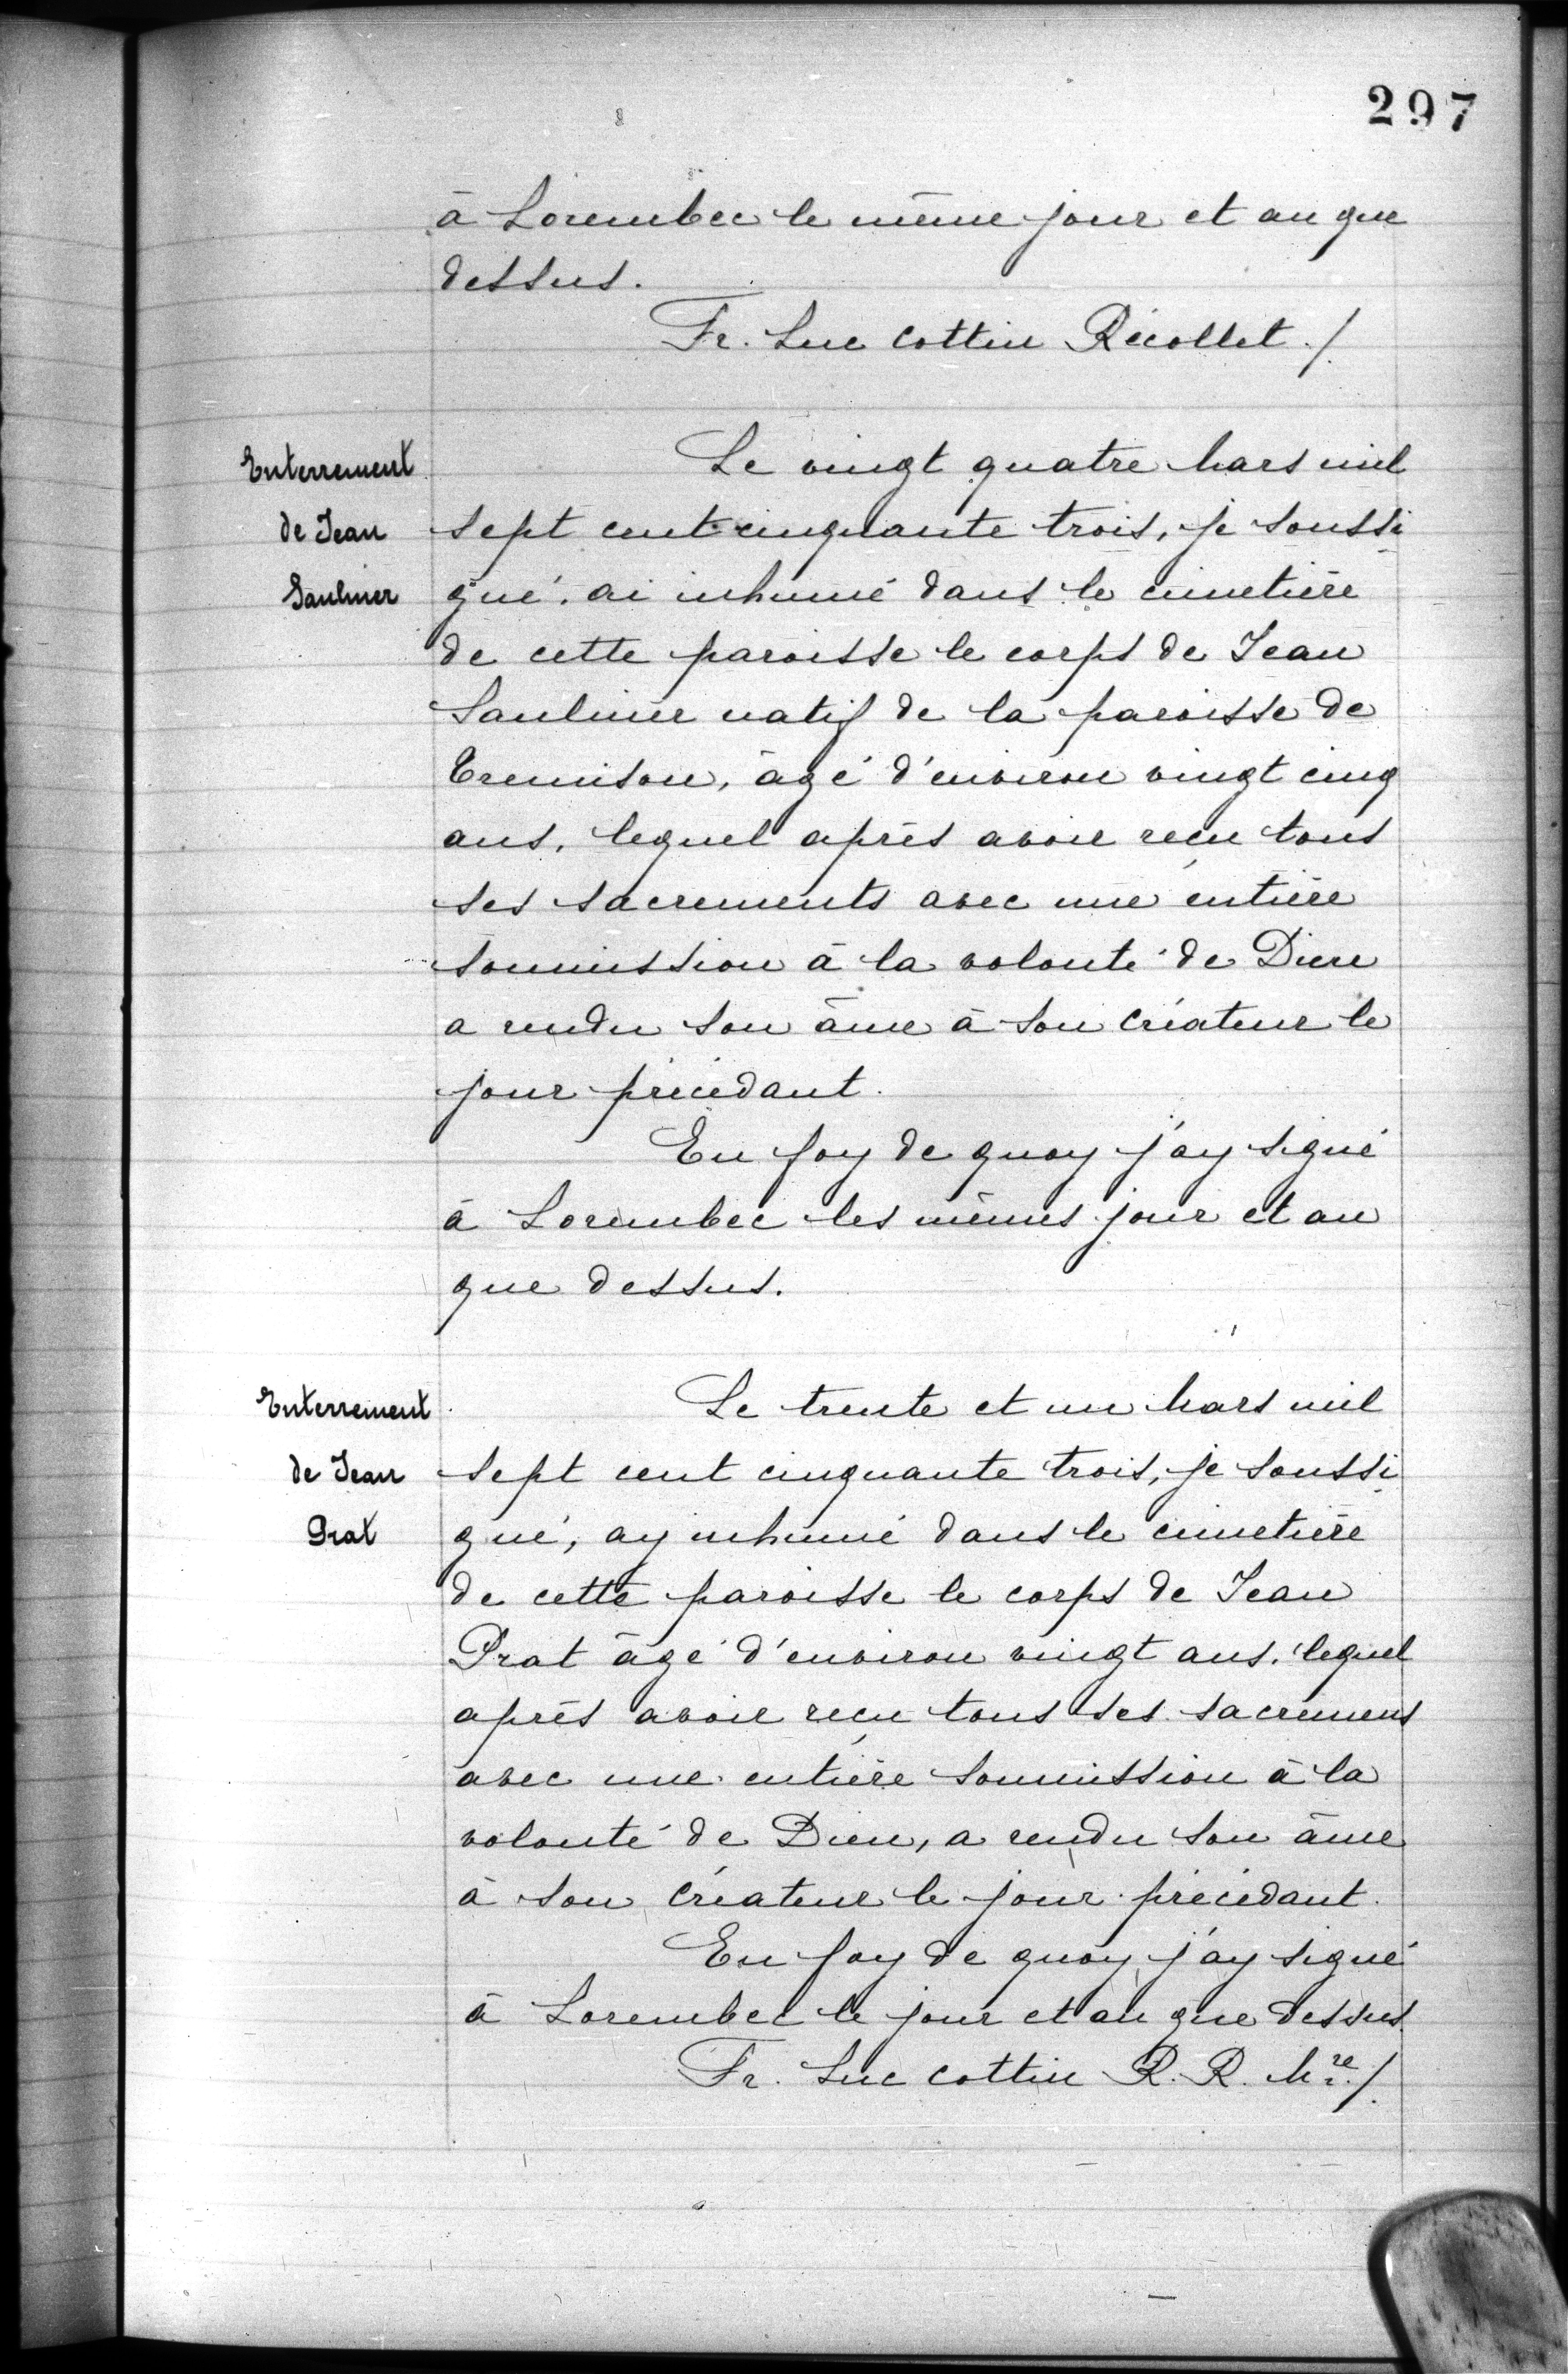 297
à Lorembec le même jour et an que
dessus.
Fr. Luc Cottin Récollet ./.
Enterrement
de Jean
Saulnier
Le vingt quatre Mars mil
sept cent cinquante trois, je soussi
gné, ai inhumé dans le cimetière
de cette paroisse le corps de Jean
Saulnier natif de la paroisse de
Cremison, âgé d'environ vingt cinq
ans, lequel après avoir reçu tous
ses sacrements avec une entière
soumission à la volonté de Dieu
a rendu son âme à son Créateur le
jour précédant.
En foy de quoy j'ay signé
à Lorembec les mêmes jour et an
que dessus.
Enterrement
de Jean
Prat
Le trente et un Mars mil
sept cent cinquante trois, je soussi
gné, ay inhumé dans le cimetière
de cette paroisse le corps de Jean
Prat âgé d'environ vingt ans, lequel
après avoir reçu tous ses sacremens
avec une entière soumission à la
volonté de Dieu, a rendu son âme
à son Créateur le jour précédant.
En foy de quoy j'ay signé
à Lorembec le jour et an que dessus.
Fr. Luc Cottin R. R. Mre ./.